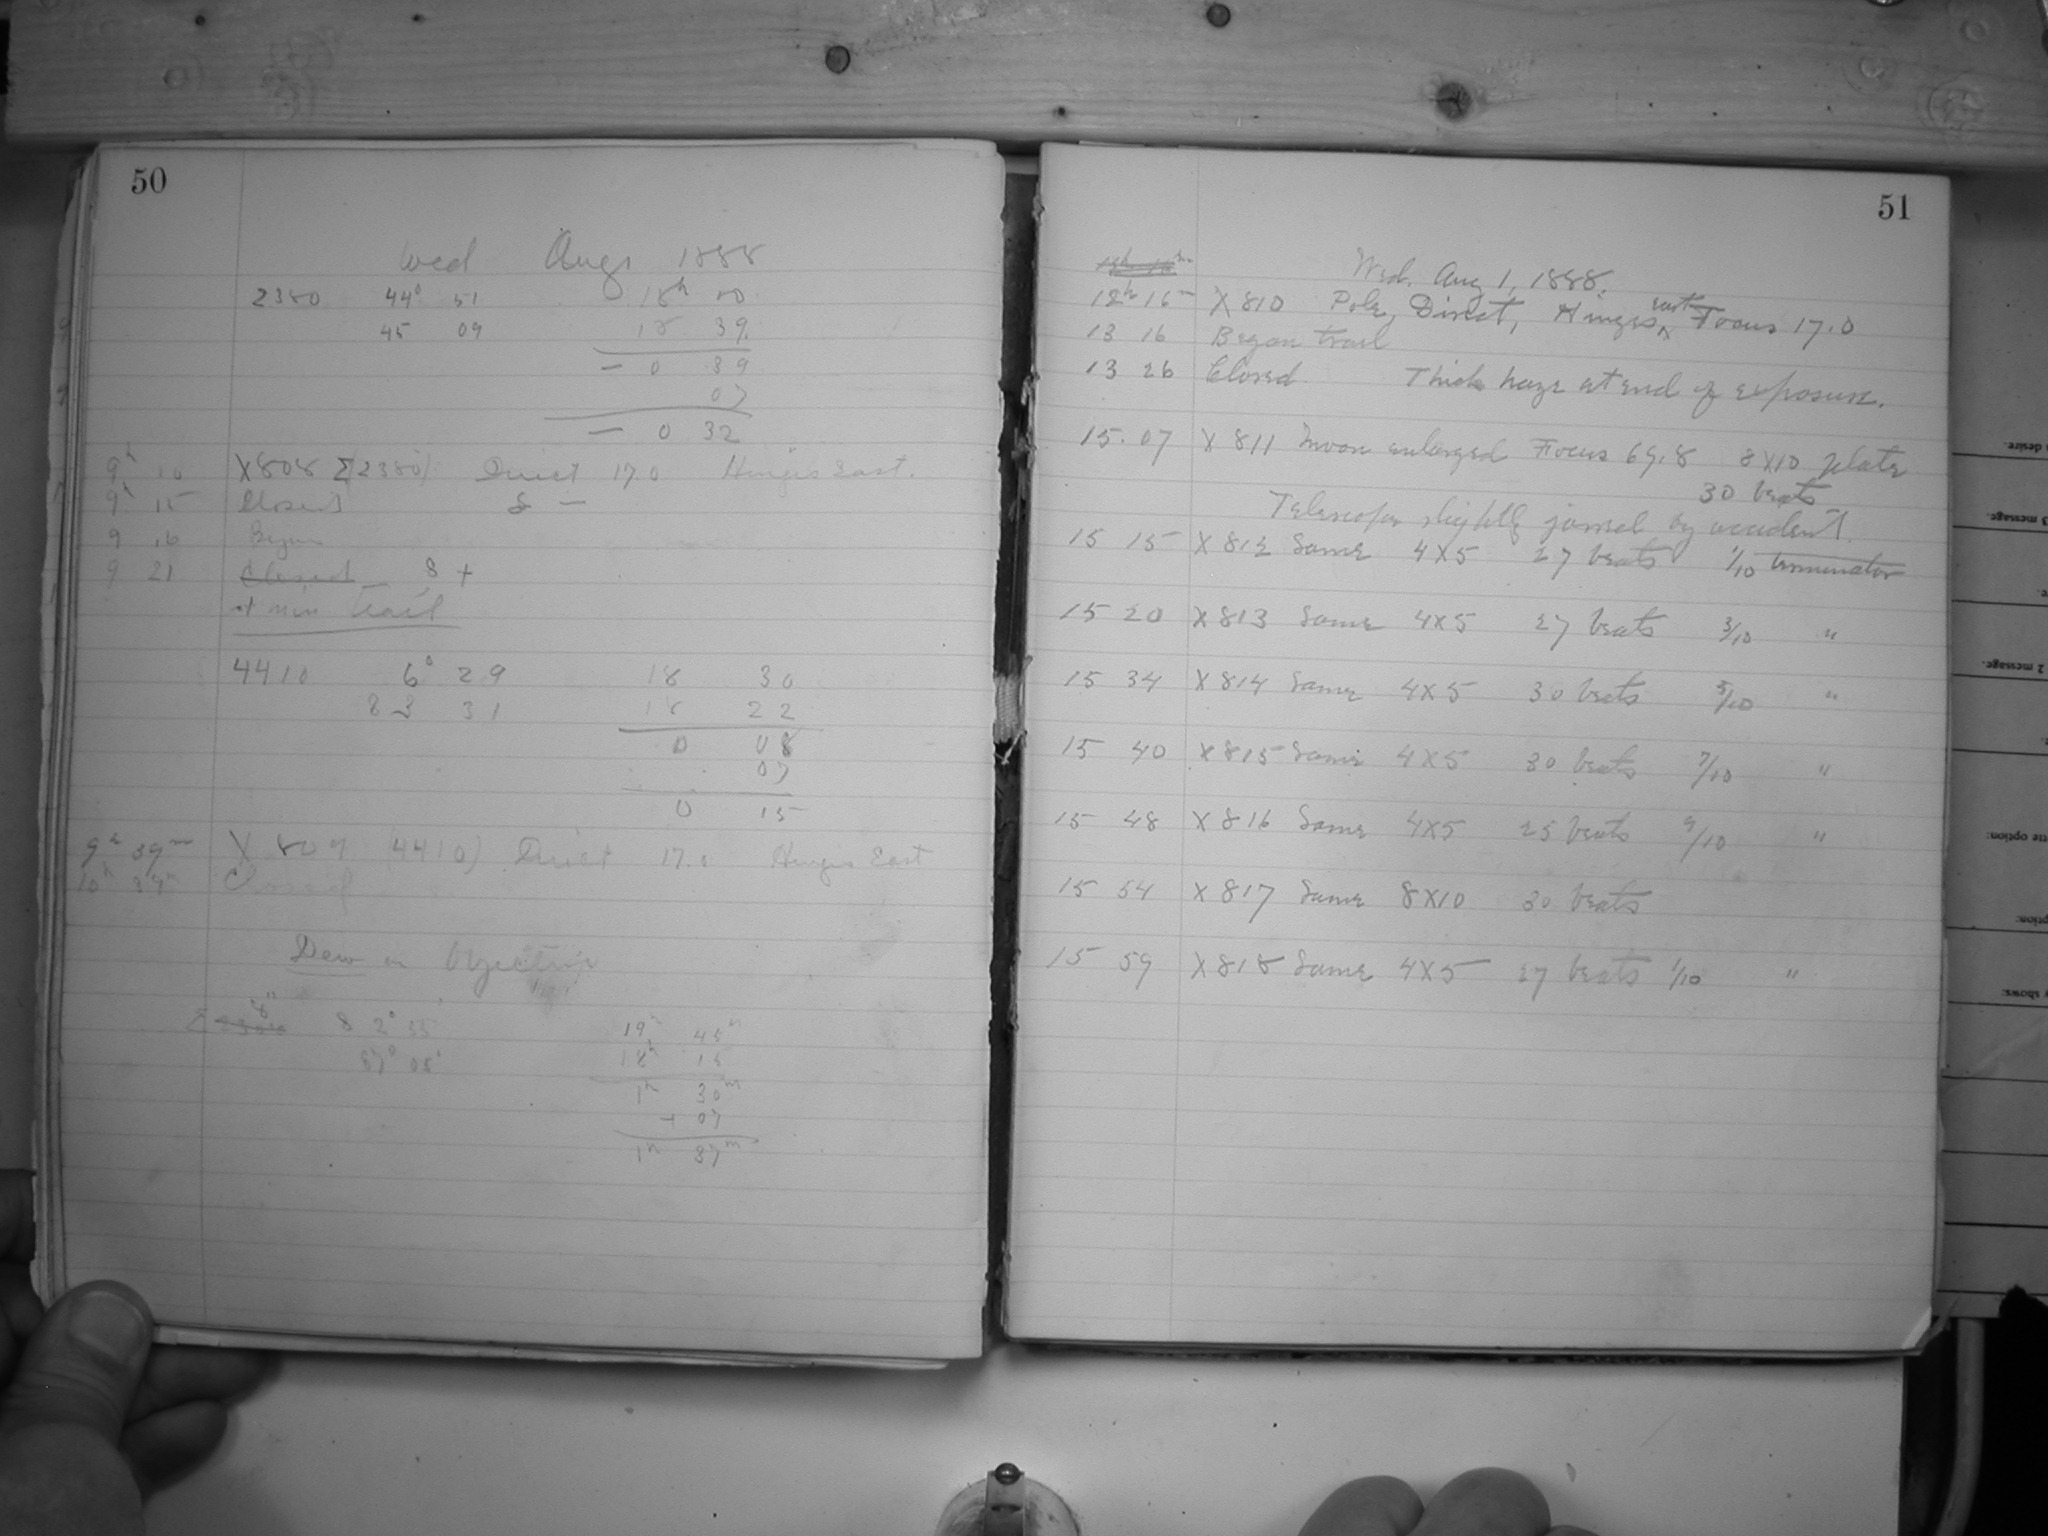 50
Wed Aug 1 1888
2380 44° 51 18h 00
45 09 18 39
— 0 39
07
— 0 32
9h 10 X808 Σ(2380) Direct 17.0 Hinges East.
9h 15 Closed 8 —
9 16 Began
9 21 Closed 8 +
min trail
4410 6° 29 18 30
83 31 18 22
0 08
07
0 15
9h 39m X 809 (4410) Direct 17.0 Hinges East
10h 39m Closed
Dew on Objective
82° 55' 19h 45m
87° 05' 18h 15
1h 30m
+ 07
1h 37m
51
Wed. Aug 1, 1888.
12h 16m X 810 Pole, Direct, Hinges east Focus 17.0
13 16 Began trail
13 26 Closed Thick haze at end of exposure.
15.07 X 811 Moon enlarged Focus 69.8 8X10 plate
30 beats
Telescope slightly jarred by accident.
15 15 X 812 Same 4X5 27 beats 1/10 terminator
15 20 X 813 Same 4X5 27 beats 3/10 "
15 34 X 814 Same 4X5 30 beats 5/10 "
15 40 X 815 Same 4X5 30 beats 7/10 "
15 48 X 816 Same 4X5 25 beats 9/10 "
15 54 X 817 Same 8X10 30 beats
15 59 X 818 Same 4X5 27 beats 1/10 "